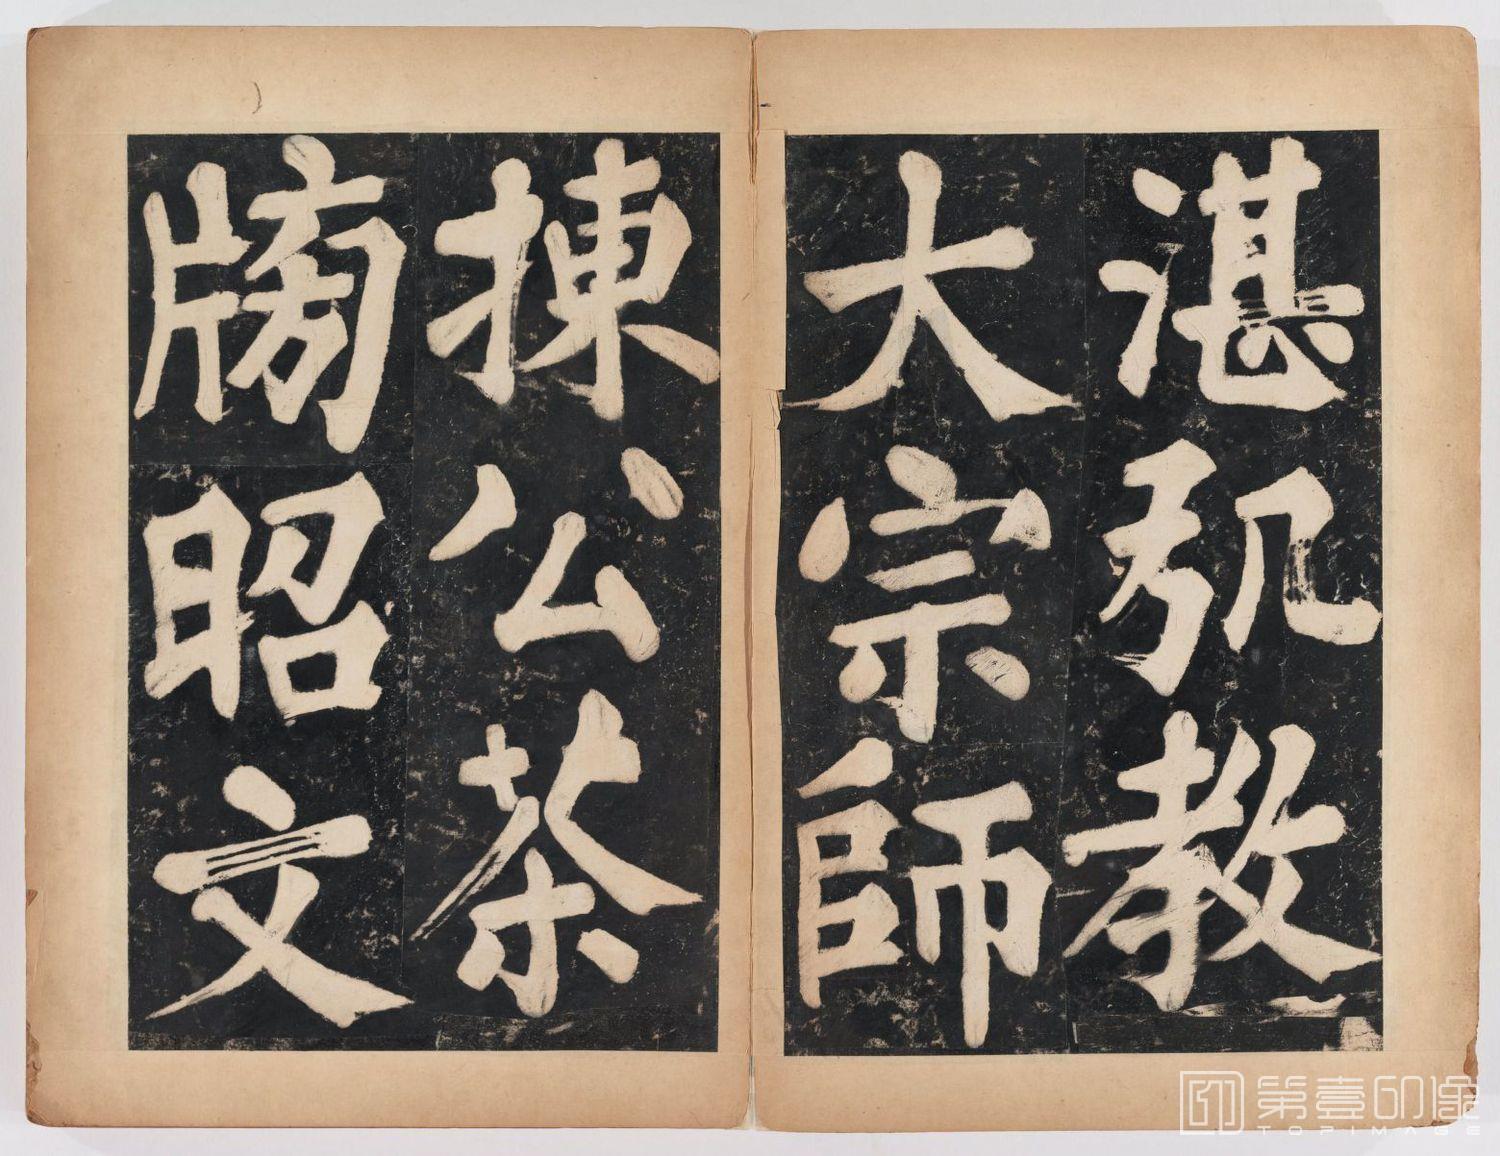 湛弘教
大宗師
揀公茶
牓昭文
第壹印像
TOPIMAGE